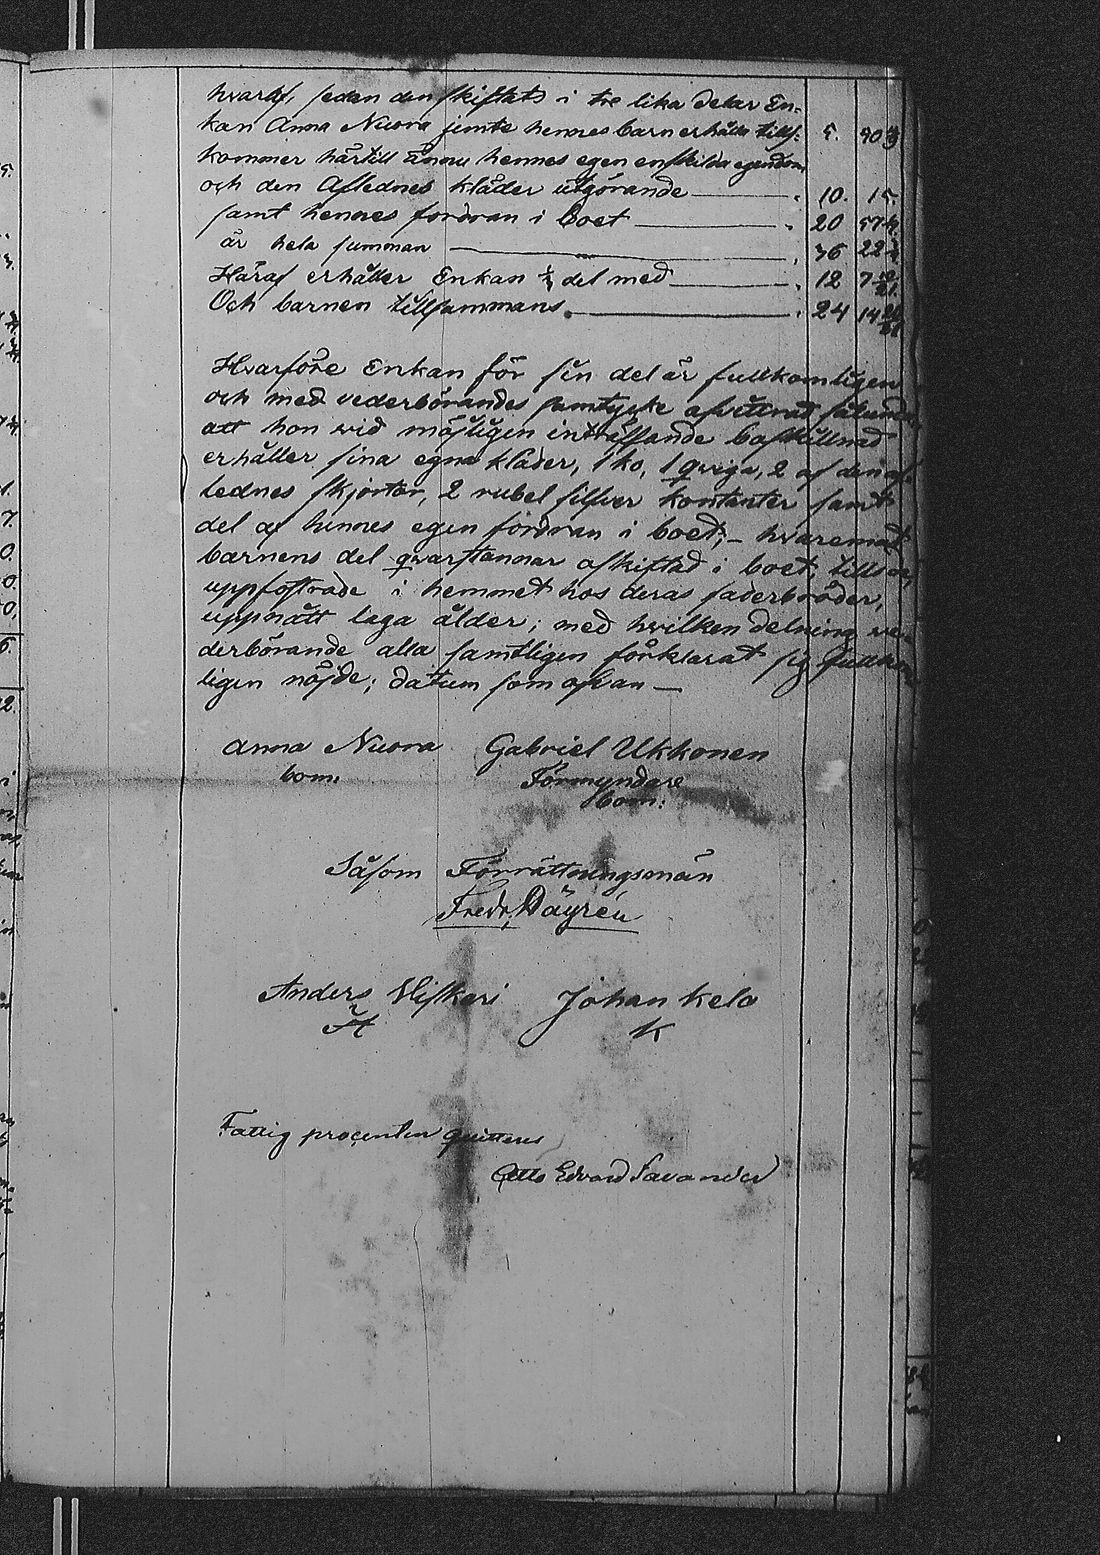 hvaraf, sedan den skiftats i tre lika delar En-
kan Anna Nuora jemte hennes barn erhålla tills: 5. 90
kommer härtill ännu hennes egen enskilda egendom
och den Aflednes kläder utgörande 10. 15.
samt hennes fordran i boet 20 57
är hela summan 36 22
Häraf erhåller Enkan 1/3 del med 12 7
Och barnen tillsammans 24 14
Hvarföre Enkan för sin del är fullkomligen
och med vederbörandes samtycke afvittrad sålunda
att hon wid möjligen inträffande boskillnad
erhåller sina egna kläder, 1 ko, 1 qviga, 2 af den af-
lednes skjortor, 2 rubel silfver kontanter samt
del af hennes egen fordran i boet; - hvaremot
barnens del qvarstannar oskiftad i boet, tills de,
uppfostrade i hemmet hos deras faderbröder,
uppnått laga ålder; med hvilken delning ve-
derbörande alla samtligen förklarat sig fullkom
ligen nöjde; datum som ofvan —
Anna Nuora Gabriel Ukkonen
bom: Förmyndare
bom:
Såsom Förrättningsmän
Fredr. Däyrén
Anders Johan Kela
K
Fattig procenten quitteras
Otto Edvard Savander